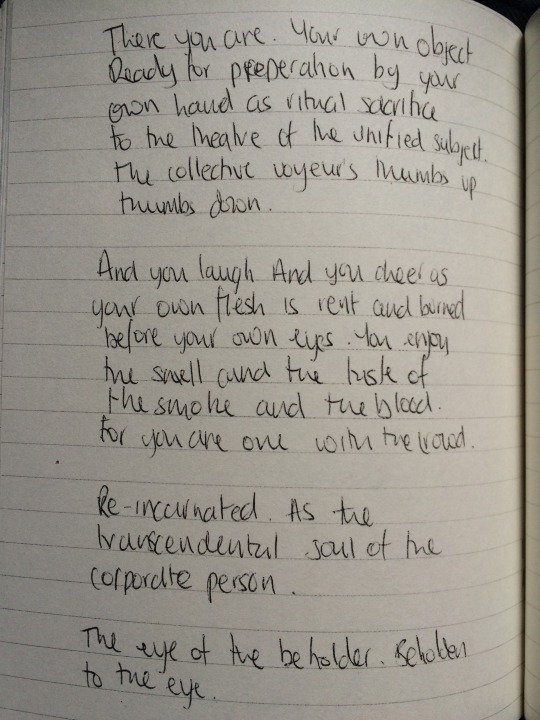 There you are. Your own object
Ready for preperation by your
own hand as ritual sacrifice
to the theatre of the unified subject.
The collective voyeur's thumbs up
thumbs down.
And you laugh And you cheer as
your own flesh is rent and burned
before your own eyes. You enjoy
the smell and the taste of
the smoke and the blood.
For you are one with the crowd.
Re-incarnated. As the
transcendental soul of the
corporate person.
The eye of the beholder. Beholden
to the eye.